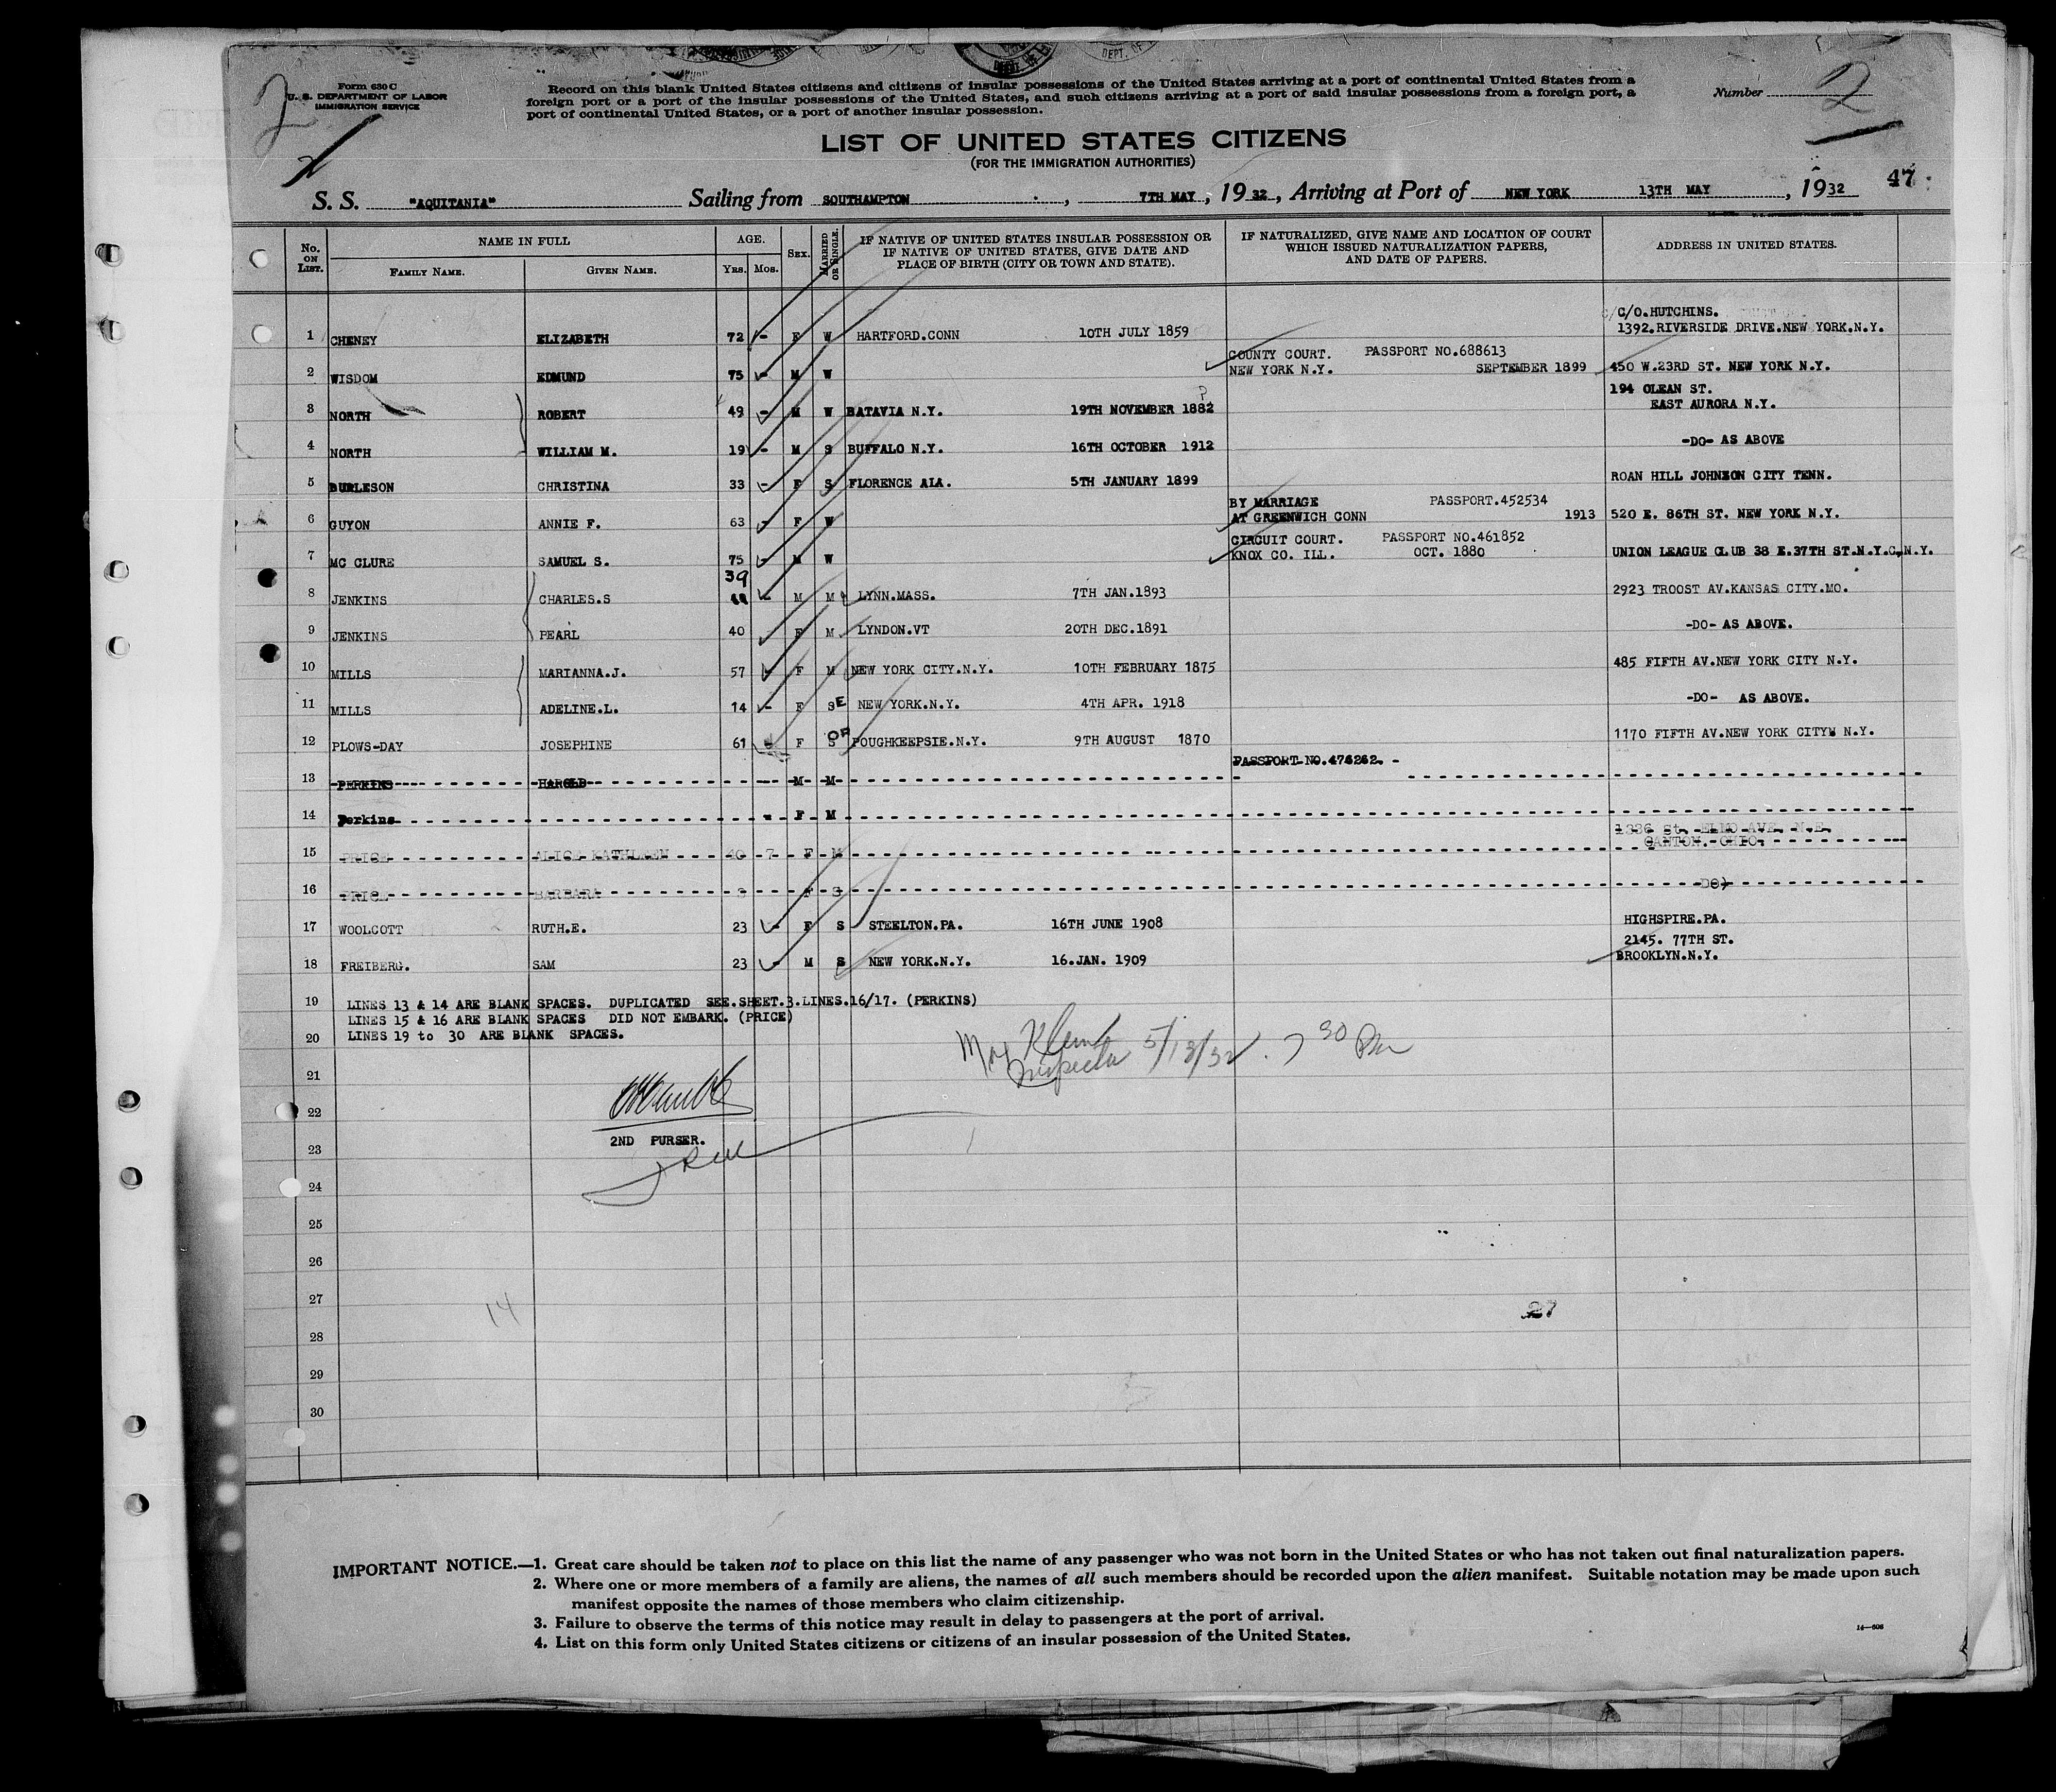 DEPT. OF
2
Form 630 C
U. S. DEPARTMENT OF LABOR
IMMIGRATION SERVICE
Record on this blank United States citizens and citizens of insular possessions of the United States arriving at a port of continental United States from a
foreign port or a port of the insular possessions of the United States, and such citizens arriving at a port of said insular possessions from a foreign port, a
port of continental United States, or a port of another insular possession.
Number 2
LIST OF UNITED STATES CITIZENS
(FOR THE IMMIGRATION AUTHORITIES)
S. S. "AQUITANIA" Sailing from SOUTHAMPTON, 7TH MAY, 1932, Arriving at Port of NEW YORK 13TH MAY, 1932 47
No. ON LIST. NAME IN FULL AGE. SEX. MARRIED OR SINGLE. IF NATIVE OF UNITED STATES INSULAR POSSESSION OR IF NATIVE OF UNITED STATES, GIVE DATE AND PLACE OF BIRTH (CITY OR TOWN AND STATE). IF NATURALIZED, GIVE NAME AND LOCATION OF COURT WHICH ISSUED NATURALIZATION PAPERS, AND DATE OF PAPERS. ADDRESS IN UNITED STATES.
FAMILY NAME. GIVEN NAME. YRS. MOS.
C/O.HUTCHINS.
1 CHENEY ELIZABETH 72 - F W HARTFORD.CONN 10TH JULY 1859 1392.RIVERSIDE DRIVE.NEW YORK.N.Y.
COUNTY COURT. PASSPORT NO.688613
2 WISDOM EDMUND 75 - M W NEW YORK N.Y. SEPTEMBER 1899 450 W.23RD ST. NEW YORK N.Y.
194 OLEAN ST.
3 NORTH ROBERT 49 - M W BATAVIA N.Y. 19TH NOVEMBER 1882 EAST AURORA N.Y.
4 NORTH WILLIAM M. 19 - M S BUFFALO N.Y. 16TH OCTOBER 1912 -DO- AS ABOVE
5 BURLESON CHRISTINA 33 - F S FLORENCE ALA. 5TH JANUARY 1899 ROAN HILL JOHNSON CITY TENN.
BY MARRIAGE PASSPORT.452534
6 GUYON ANNIE F. 63 - F W AT GREENWICH CONN 1913 520 E. 86TH ST. NEW YORK N.Y.
CIRCUIT COURT. PASSPORT NO.461852
7 MC CLURE SAMUEL S. 75 - M W KNOX CO. ILL. OCT. 1880 UNION LEAGUE CLUB 38 E.37TH ST.N.Y.C.N.Y.
39
8 JENKINS CHARLES.S - M M LYNN.MASS. 7TH JAN.1893 2923 TROOST AV.KANSAS CITY.MO.
9 JENKINS PEARL 40 F M LYNDON.VT 20TH DEC.1891 -DO- AS ABOVE.
10 MILLS MARIANNA.J. 57 - F M NEW YORK CITY.N.Y. 10TH FEBRUARY 1875 485 FIFTH AV.NEW YORK CITY N.Y.
11 MILLS ADELINE.L. 14 - F S NEW YORK.N.Y. 4TH APR. 1918 -DO- AS ABOVE.
12 PLOWS-DAY JOSEPHINE 61 - F S POUGHKEEPSIE.N.Y. 9TH AUGUST 1870 1170 FIFTH AV.NEW YORK CITY N.Y.
PASSPORT NO.476262.
13 PERKINS HAROLD - M M
14 Perkins - F M
1336 St. ELMO AVE. N.E.
15 PRICE ALICE KATHLEEN 40 7 F M CANTON. OHIO.
16 PRICE BARBARA F S DO
17 WOOLCOTT RUTH.E. 23 - F S STEELTON.PA. 16TH JUNE 1908 HIGHSPIRE.PA.
2145. 77TH ST.
18 FREIBERG. SAM 23 - M S NEW YORK.N.Y. 16.JAN. 1909 BROOKLYN.N.Y.
19 LINES 13 & 14 ARE BLANK SPACES. DUPLICATED SEE.SHEET.3.LINES.16/17. (PERKINS)
LINES 15 & 16 ARE BLANK SPACES DID NOT EMBARK. (PRICE)
20 LINES 19 to 30 ARE BLANK SPACES.
Klein
Inspector 5/13/32. 7 30 Pm
21
22
2ND PURSER.
23
24
25
26
27 27
14
28
29
30
IMPORTANT NOTICE.—1. Great care should be taken not to place on this list the name of any passenger who was not born in the United States or who has not taken out final naturalization papers.
2. Where one or more members of a family are aliens, the names of all such members should be recorded upon the alien manifest. Suitable notation may be made upon such
manifest opposite the names of those members who claim citizenship.
3. Failure to observe the terms of this notice may result in delay to passengers at the port of arrival.
4. List on this form only United States citizens or citizens of an insular possession of the United States.
14—606